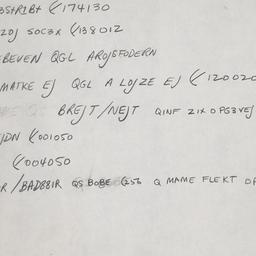 BStR1Bt (/174130
ZOJ SOC3X (/138012
EBEVEN QGL AROJSFODERN
MATKE EJ QGL A LOJZE EJ (/120020
BREJT/NEJT QINF Z1XOPG3VEJ
JDN (/001050
(/004050
R/BAD881R QS BOBE QS6 Q MAME FLEKT OF